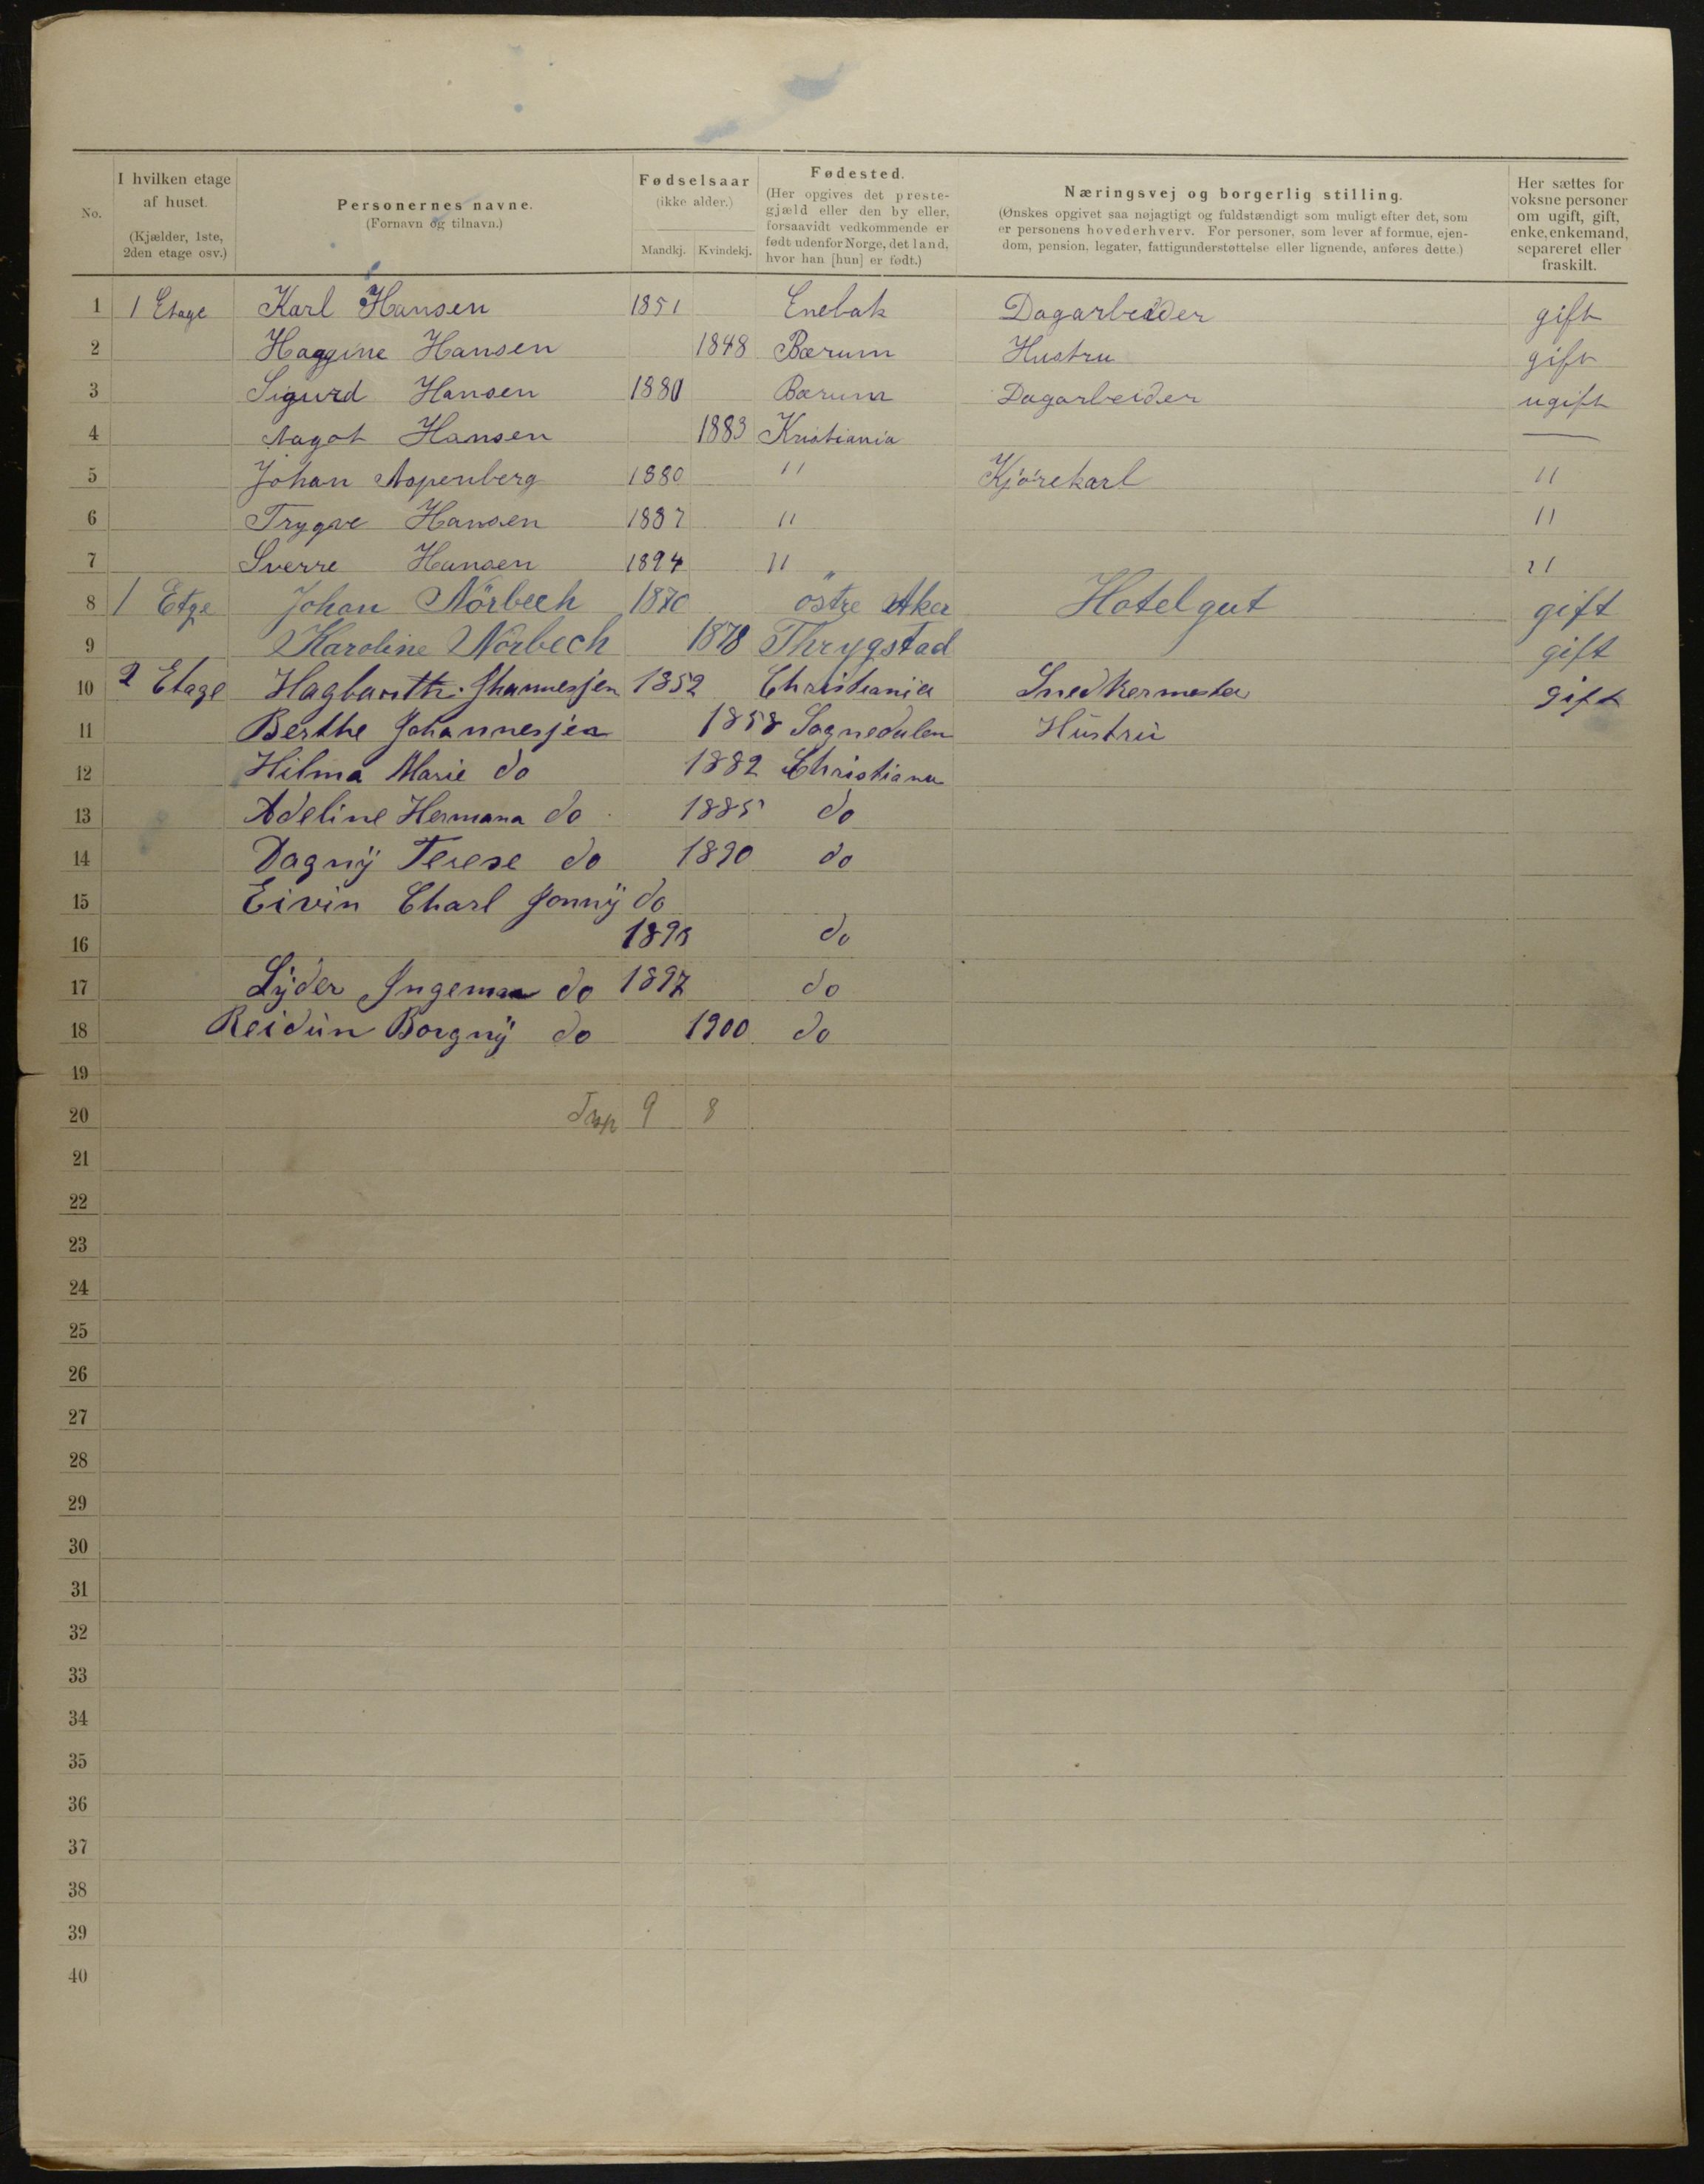 No.
I hvilken etage af huset. (Kjælder, 1ste, 2den etage osv.)
Personernes navne. (Fornavn og tilnavn.)
Fødselsaar (ikke alder.) Mandkj. Kvindekj.
Fødested. (Her opgives det prestegjæld eller den by eller, forsaavidt vedkommende er født udenfor Norge, det land, hvor han [hun] er født.)
Næringsvej og borgerlig stilling. (Ønskes opgivet saa nøjagtigt og fuldstændigt som muligt efter det, som er personens hovederhverv. For personer, som lever af formue, ejendom, pension, legater, fattigunderstøttelse eller lignende, anføres dette.)
Her sættes for voksne personer om ugift, gift, enke, enkemand, separeret eller fraskilt.
1 1 Etage Karl Hansen 1851 Enebak Dagarbeider gift
2 Haggine Hansen 1848 Bærum Hustru gift
3 Sigurd Hansen 1880 Bærum Dagarbeider ugift
4 Aagot Hansen 1883 Kristiania —
5 Johan Aspenberg 1880 " Kjörekarl "
6 Trygve Hansen 1887 " "
7 Sverre Hansen 1894 " "
8 1 Etge Johan Nörbech 1870 östre Aker Hotelgut gift
9 Karoline Nörbech 1878 Thrygstad gift
10 2 Etage Hagbarth Johannesjen 1852 Christiania Snedkermester gift
11 Berthe Johannesjen 1858 Sognedalen Hustru
12 Hilma Marie do 1882 Christiania
13 Adeline Hermana do 1885 do
14 Dagny Terese do 1890 do
15 Eivin Charl Jonny do
16 1895 do
17 Lyder Ingeman do 1897 do
18 Reidun Borgny do 1900 do
19
20 9 8
21
22
23
24
25
26
27
28
29
30
31
32
33
34
35
36
37
38
39
40